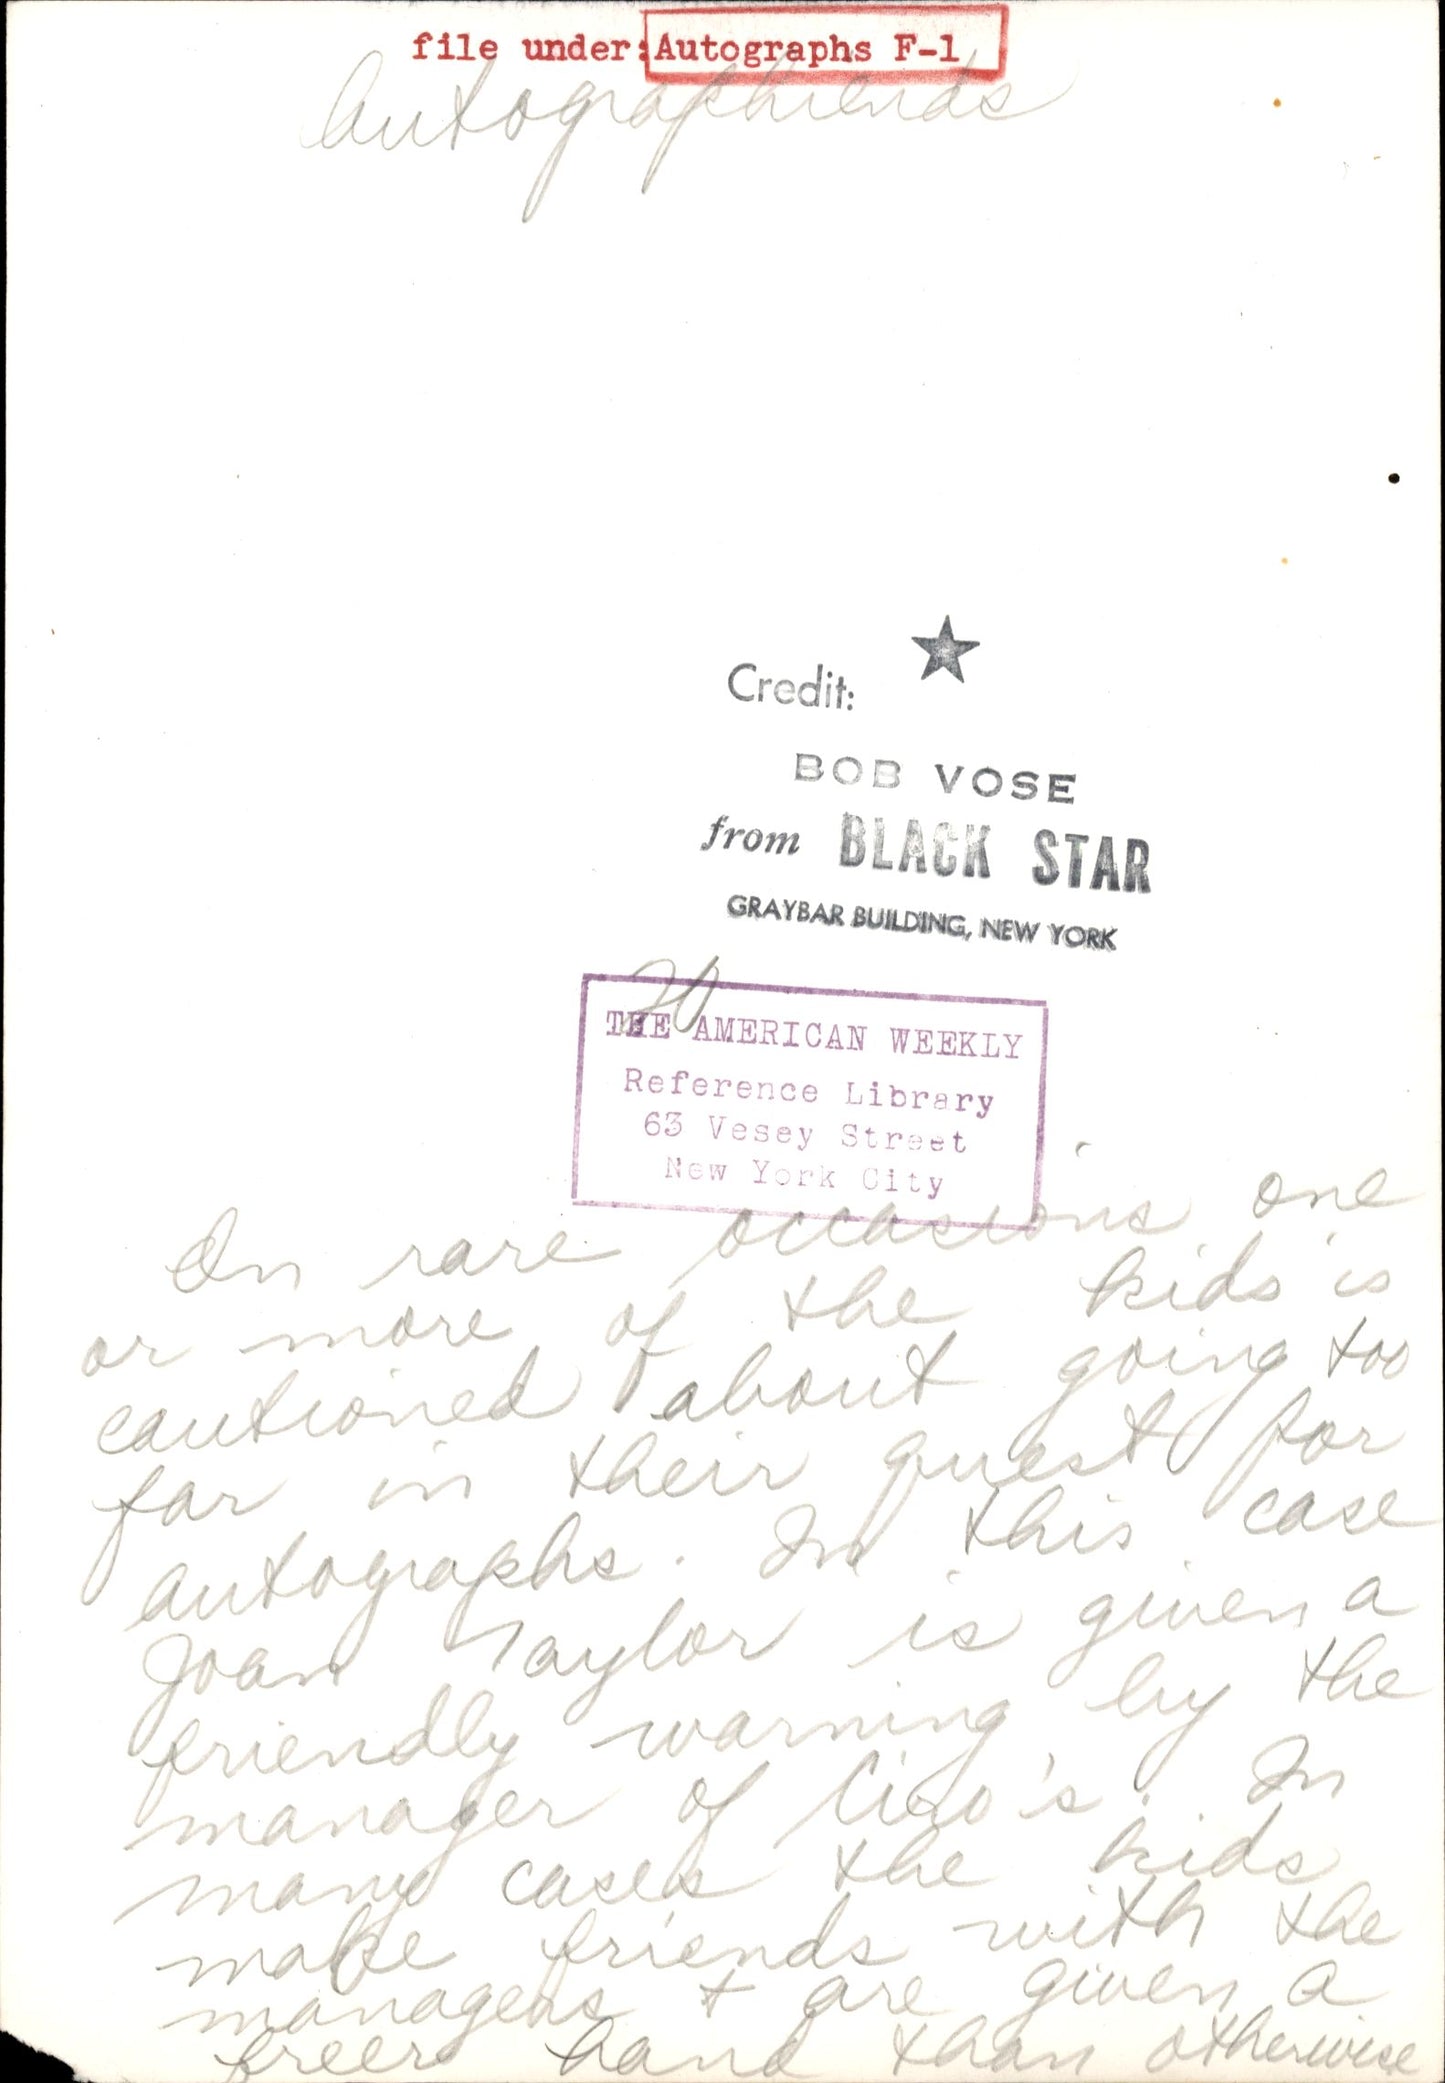 file under: Autographs F-1
Autographiends
Credit:
BOB VOSE
from BLACK STAR
GRAYBAR BUILDING, NEW YORK
20
THE AMERICAN WEEKLY
Reference Library
63 Vesey Street
New York City
On rare occasions one
or more of the kids is
cautioned about going too
far in their quest for
autographs. In this case
Joan Taylor is given a
friendly warning by the
manager of Ciro's. In
many cases the kids
make friends with the
managers + are given a
freer hand than otherwise